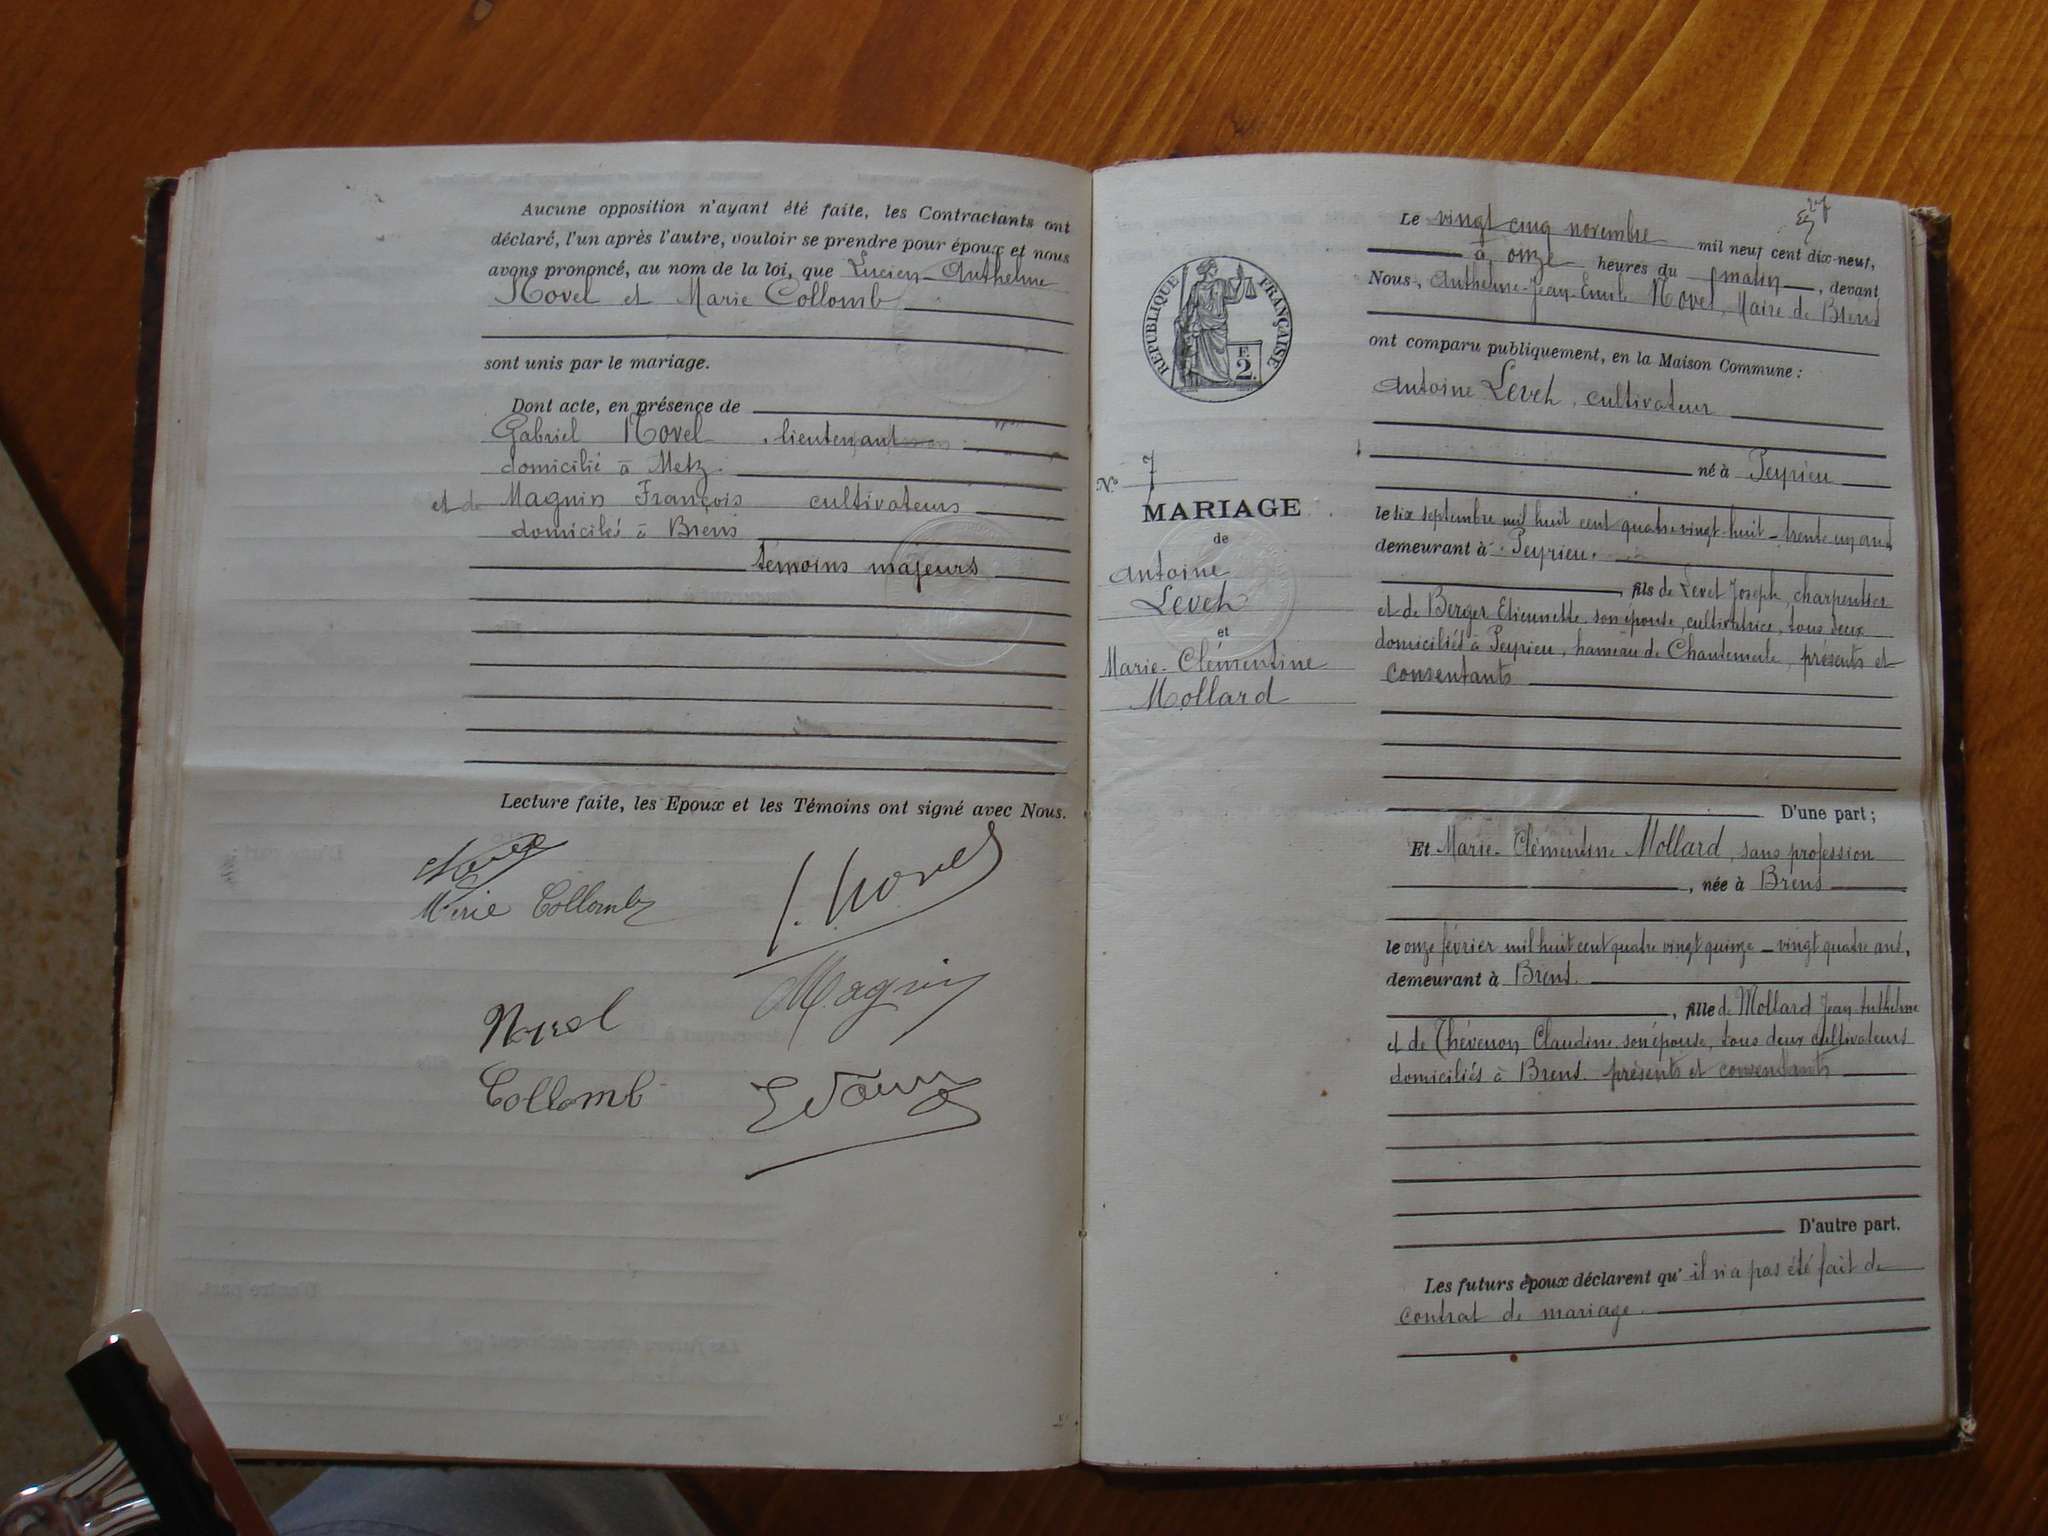 Aucune opposition n'ayant été faite, les Contractants ont
déclaré, l'un après l'autre, vouloir se prendre pour époux et nous
avons prononcé, au nom de la loi, que Lucien-Anthelme
Novel et Marie Collomb
sont unis par le mariage.
Dont acte, en présence de
Gabriel Novel, lieutenant
domicilié à Metz.
et de Magnin François cultivateurs
domiciliés à Brens
témoins majeurs
Lecture faite, les Epoux et les Témoins ont signé avec Nous.
Marie Collomb
J. Novel
Magnin
Novel
Collomb
REPUBLIQUE FRANÇAISE
E
2.
N° 7
MARIAGE
de
Antoine
Levet
et
Marie-Clémentine
Mollard
27
Le vingt cinq novembre mil neuf cent dix-neuf,
à onze heures du matin, devant
Nous, Anthelme-Jean-Emile Novel, Maire de Brens
ont comparu publiquement, en la Maison Commune :
Antoine Levet, cultivateur
né à Peyrieu
le six septembre mil huit cent quatre vingt-huit - trente un ans
demeurant à Peyrieu.
, fils de Levet Joseph, charpentier
et de Berger Etiennette, son épouse, cultivatrice, tous deux
domiciliés à Peyrieu, hameau de Chantemerle, présents et
consentants
D'une part ;
Et Marie-Clémentine Mollard, sans profession
, née à Brens
le onze février mil huit cent quatre vingt quinze - vingt quatre ans,
demeurant à Brens.
, fille de Mollard Jean-Anthelme
et de Thévenon Claudine, son épouse, tous deux cultivateurs
domiciliés à Brens. présents et consentants
D'autre part.
Les futurs époux déclarent qu' il n'a pas été fait de
contrat de mariage.